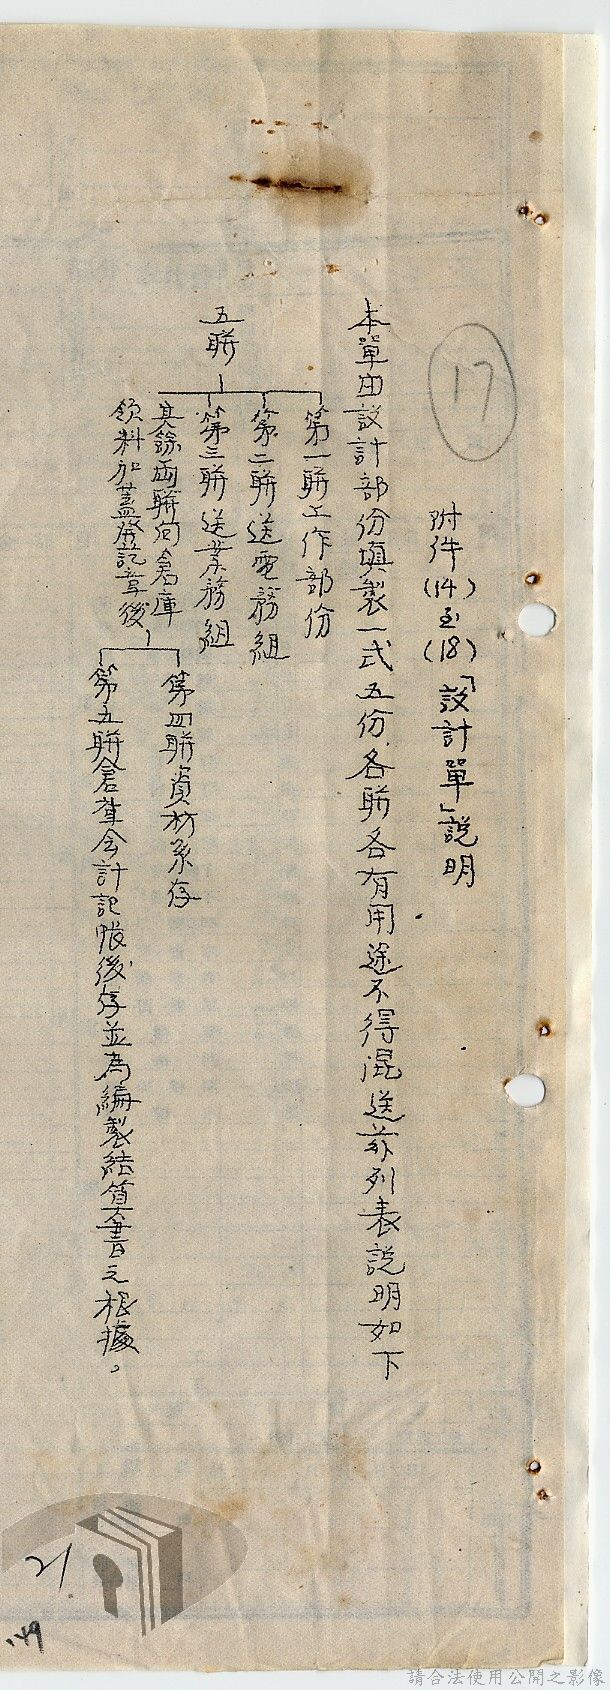 17
附件(14)至(18)「設計單」說明
本單由設計部份填製一式五份各聯各有用途不得混送茲列表說明如下
五聯
第一聯工作部份
第二聯送電務組
第三聯送業務組
其餘両聯向倉庫
領料加蓋發記章後
第四聯資材系存
第五聯倉庫会計記帳後存並為編製結算書之根據。
21
149
請合法使用公開之影像